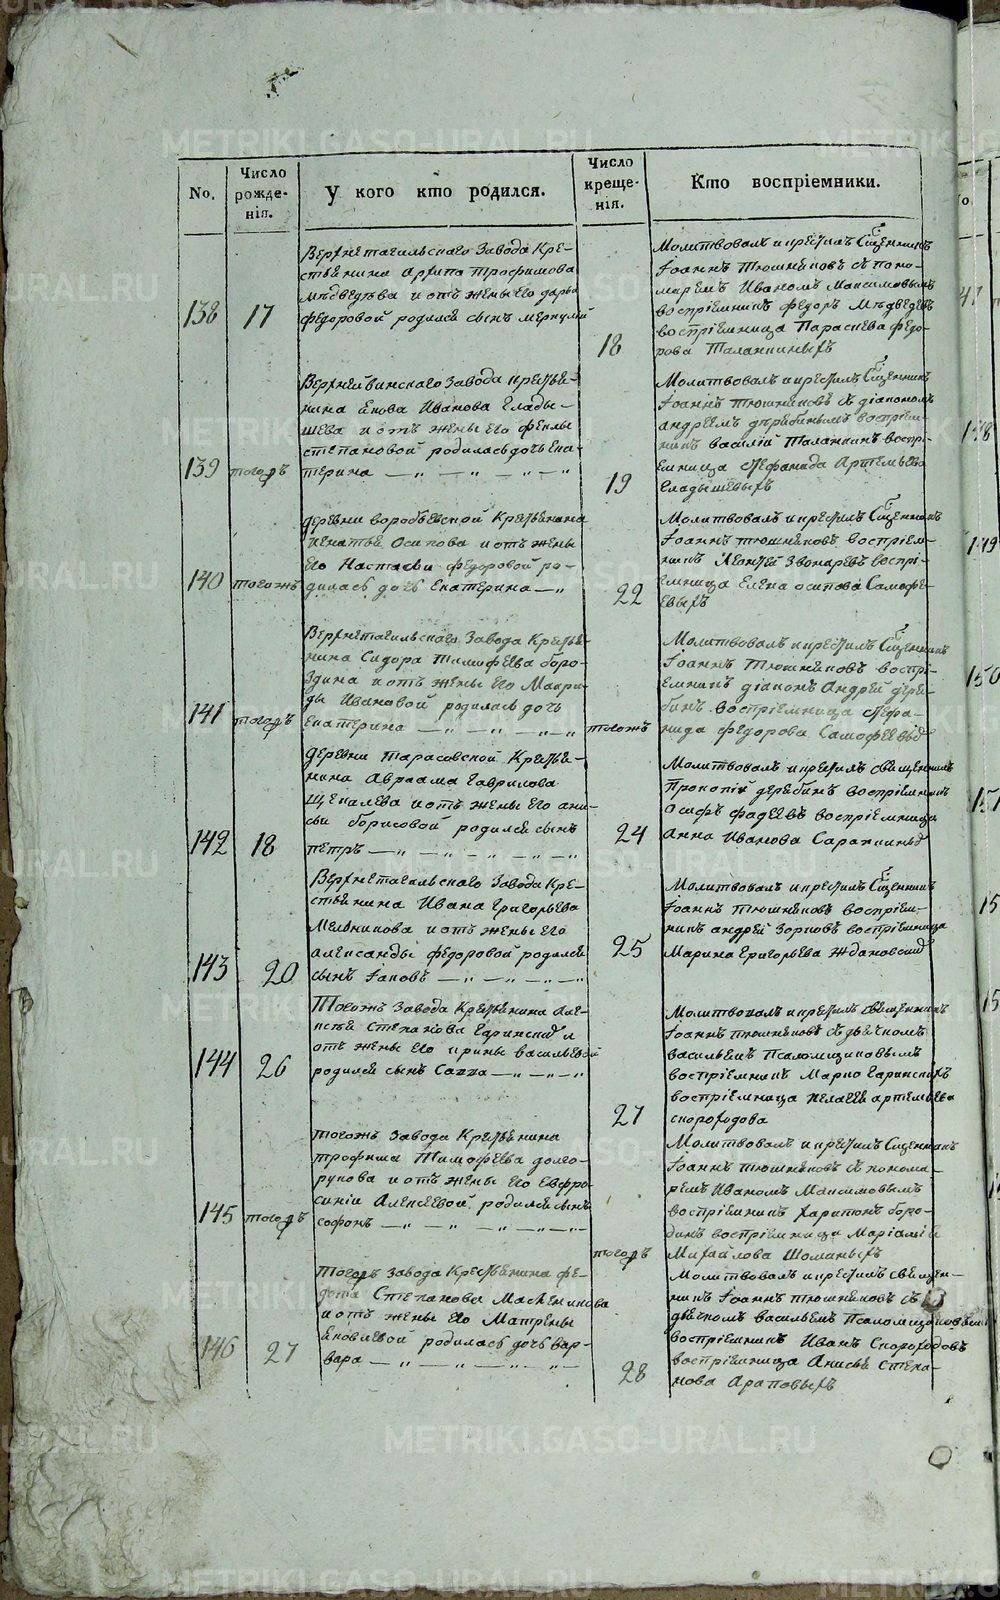 METRIKI.GASO-URAL.RU
No.
Число рожде-нія.
У кого кто родился.
Число креще-нія.
Кто воспріемники.
138
17
Верхнетагильскаго Завода Кре-
стьянина Архипа Трофимова
Мѣдведѣва и отъ жены его дарьи
федоровой родился сынъ меркулий
18
Молитвовалъ и крестилъ Сщенникъ
Іоаннъ Тюшняковъ съ поно-
маремъ Иваномъ Максимовымъ
воспріемникъ федоръ Мѣдведевъ
воспріемница Параскева федо-
рова Таланкиныхъ
139
тогожъ
Верхнейвинскаго Завода крестья-
нина Якова Иванова Глады-
шева и отъ жены его феклы
степановой родилась дочь Ека-
терина — „ — „ — „ —
19
Молитвовалъ и крестилъ Сщенникъ
Іоаннъ тюшняковъ съ діакономъ
андреемъ дерябинымъ воспріем-
никъ василій Таланкинъ воспрі-
емница стефанида Артемьева
Гладышевыхъ
140
тогожъ
деревни воробьевской Крестьянина
игнатья Осипова и отъ жены
его Настасьи федоровой ро-
дилась дочь Екатерина — „
22
Молитвовалъ и крестилъ Сщенникъ
Іоаннъ тюшняковъ воспріем-
никъ Леонтей Звонаревъ воспрі-
емница Елена осипова Самофе-
евыхъ
141
тогожъ
Верхнетагильскаго Завода Крестья-
нина Сидора Тимофеева боро-
здина и отъ жены его Маври-
ды Ивановой родилась дочь
Екатерина — „ — „ — „ —
тогожъ
Молитвовалъ и крестилъ Сщенникъ
Іоаннъ Тюшняковъ воспрі-
емникъ діаконъ Андрей деря-
бинъ воспріемница стефа-
нида федорова Самофеевыхъ
142
18
деревни тарасовской Крестья-
нина Авраама Гаврилова
Щекалева и отъ жены его ани-
сьи борисовой родился сынъ
петръ — „ — „ — „ — „ —
24
Молитвовалъ и крестилъ священникъ
Прокопій дерябинъ воспріемникъ
осифъ фадеевъ воспріемница
анна Иванова Сарапкиныхъ
143
20
Верхнетагильскаго Завода Кре-
стьянина Ивана Григорьева
Мельникова и отъ жены его
александры федоровой родился
сынъ Іаковъ — „ — „ — „ —
25
Молитвовалъ и крестилъ Сщенникъ
Іоаннъ тюшняковъ воспріем-
никъ андрей Зорковъ воспріемница
Марина Григорьева Ждановскихъ
144
26
Тогожъ Завода Крестьянина Але-
ксея Степанова Гаринскихъ и
отъ жены его ирины васильевой
родился сынъ Савва — „ — „ —
27
Молитвовалъ и крестилъ священникъ
Іоаннъ тюшняковъ съ дьячкомъ
васильемъ Псаломщиковымъ
воспріемникъ Марко Гаринскихъ
воспріемница пелагея артемьева
скороходова
145
тогожъ
тогожъ Завода Крестьянина
трофима Тимофеева долго-
рукова и отъ жены его Евфро-
синіи Алексеевой родился сынъ
софонъ — „ — „ — „ —
тогожъ
Молитвовалъ и крестилъ Сщенникъ
Іоаннъ тюшняковъ съ понома-
ремъ Иваномъ Максимовымъ
воспріемникъ харитонъ боро-
динъ воспріемница Маріамія
Михайлова Шоминыхъ
146
27
Тогожъ Завода Крестьянина фе-
дота Степанова Масленикова
и отъ жены его Матрены
Яковлевой родилась дочь вар-
вара — „ — „ — „ —
28
Молитвовалъ и крестилъ священ-
никъ Іоаннъ тюшняковъ съ
дьячкомъ васильемъ Псаломщиковымъ
воспріемникъ Иванъ Скороходовъ
воспріемница Анисья Степа-
нова Араповыхъ